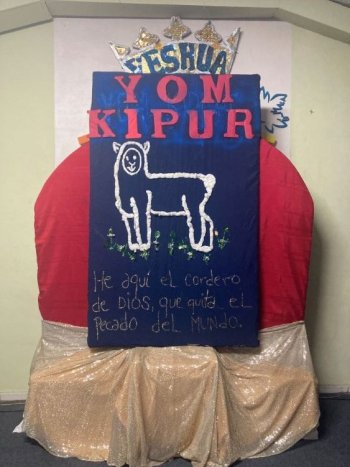 YESHUA
YOM
KIPUR
He aquí el cordero
de DIOS, que quita el
Pecado del MUNDO.